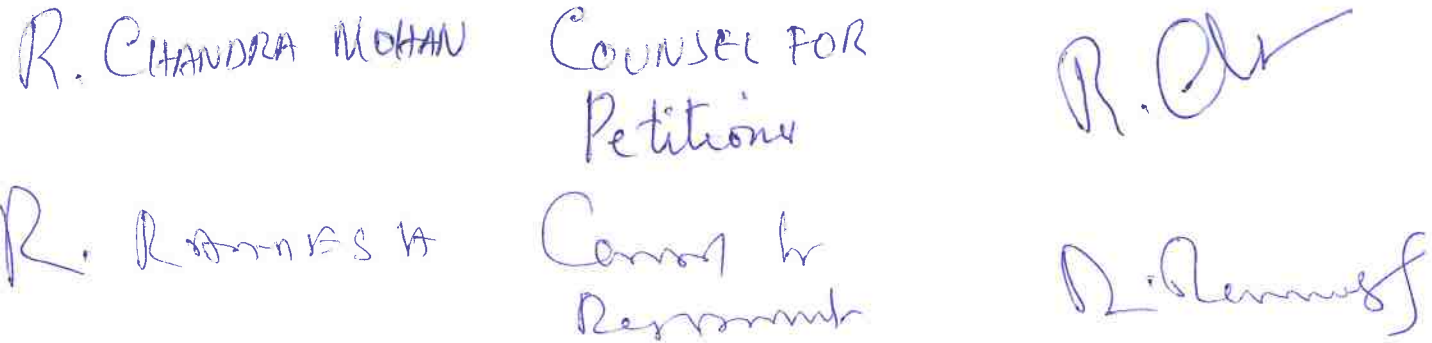 R. CHANDRA MOHAN COUNSEL FOR
Petitioner
R. RAMESH Counsel for
Respondent